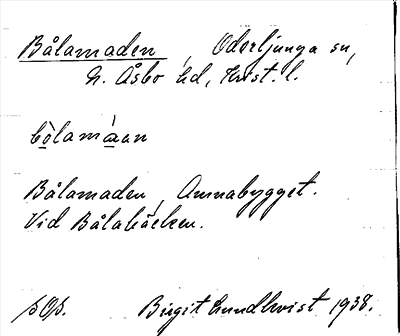 Bålamaden, Oderljunga sn,
N. Åsbo hd, Krist. l.
bòlamáan
Bålamaden, Annabygget.
Vid Bålabäcken.
Birgit Lundkvist 1938.